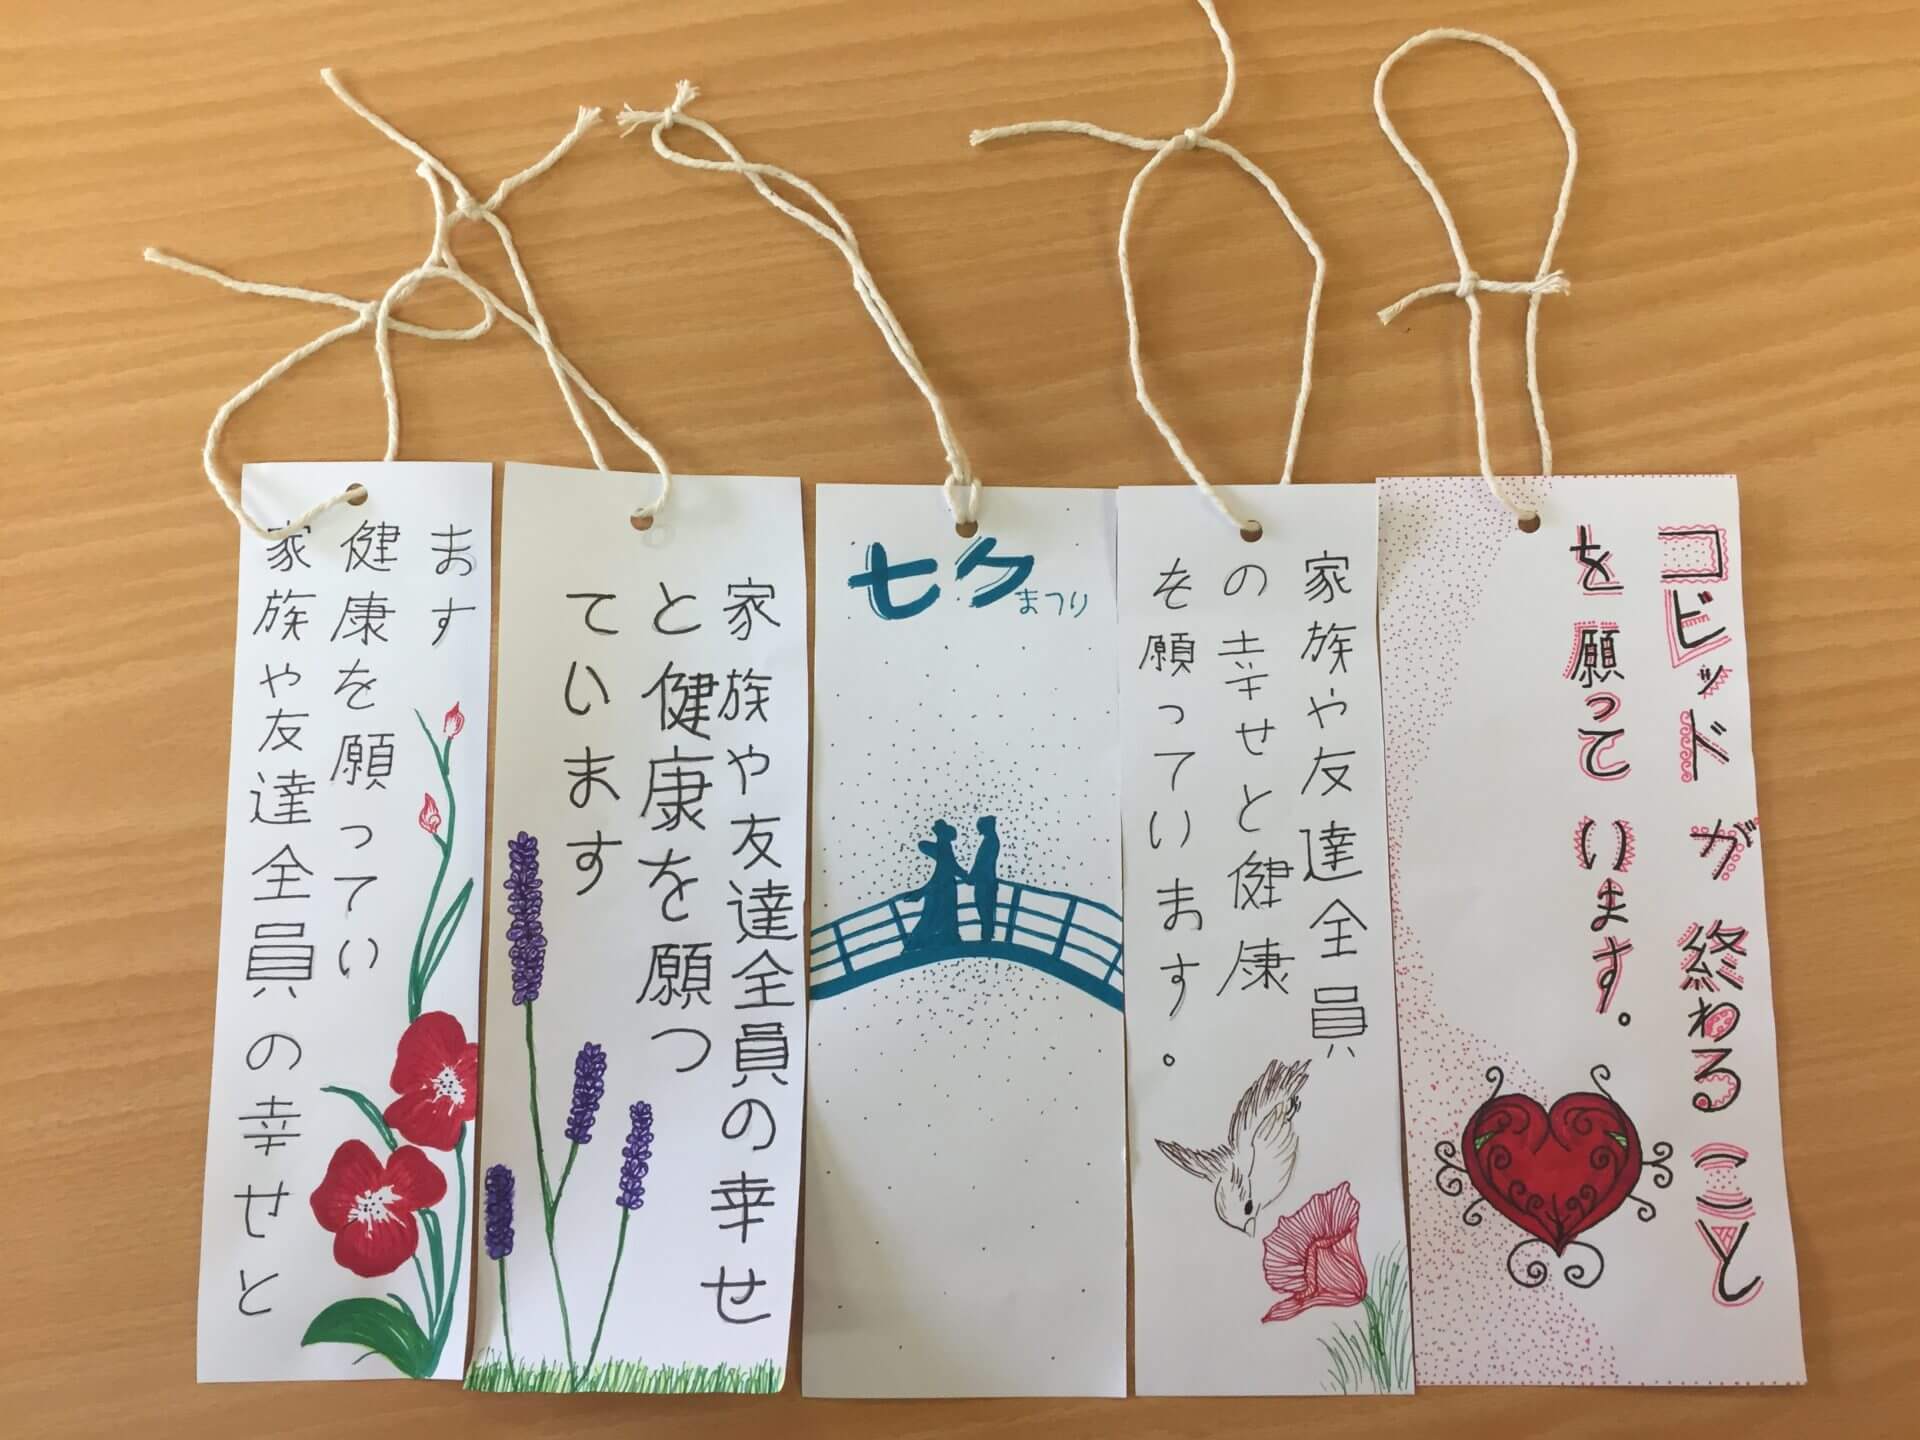 家族や友達全員の幸せと
健康を願ってい
ます
家族や友達全員の幸せ
と健康を願っ
ています
七夕まつり
家族や友達全員
の幸せと健康
を願っています。
コビッドが終わること
を願っています。